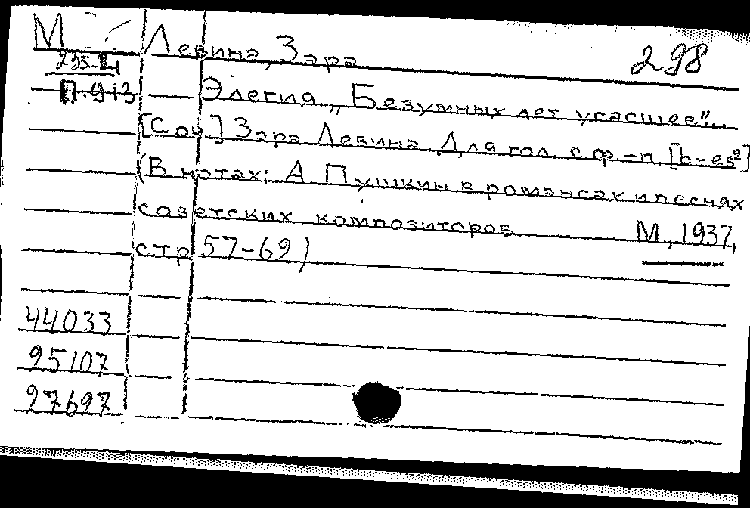 М Левина, Зара 298
235-Ц
П.913 Элегия „Безумных лет угасшее"...
[Соч.] Зара Левина. Для гол. с ф-п. [b-es²]
(В нотах: А Пушкин в романсах и песнях
советских композиторов. М., 1937,
стр 57-69)
44033
95107
97697